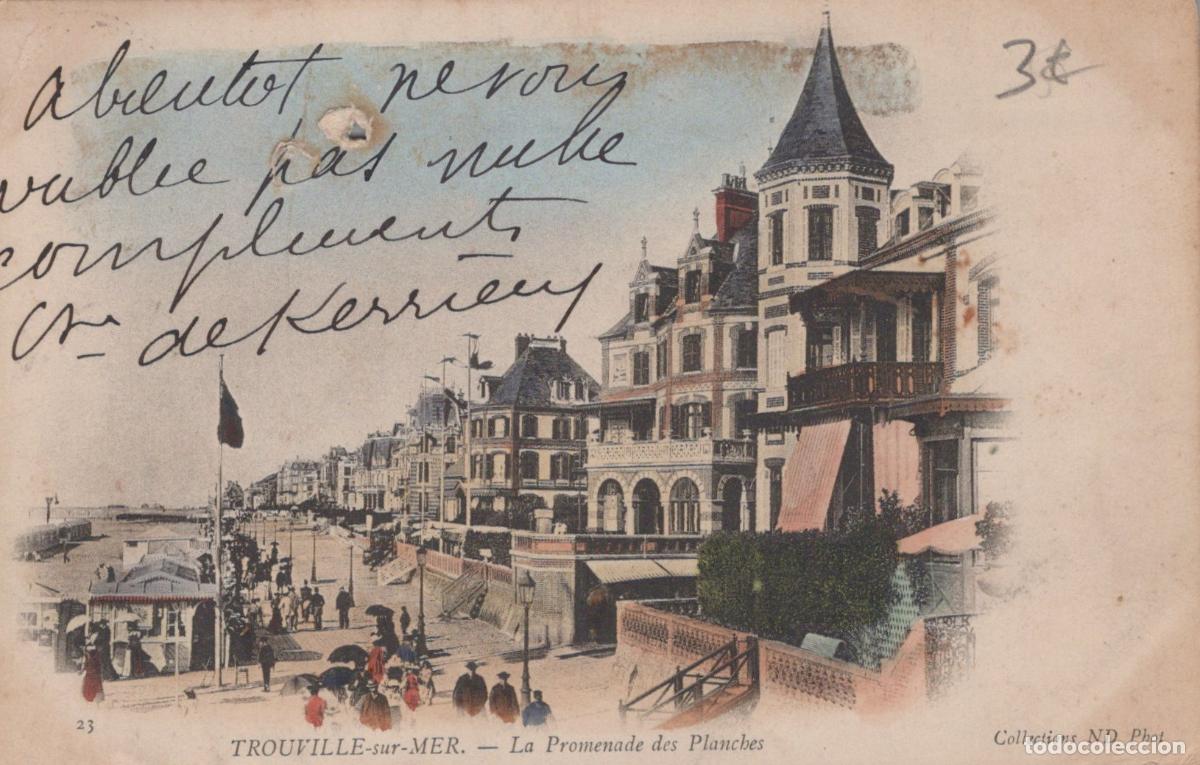 abientot ne vous
oublie pas mille
compliments
Ctsse de Kerrieu
3€
23
TROUVILLE-sur-MER. — La Promenade des Planches
Collections ND Phot
todocoleccion